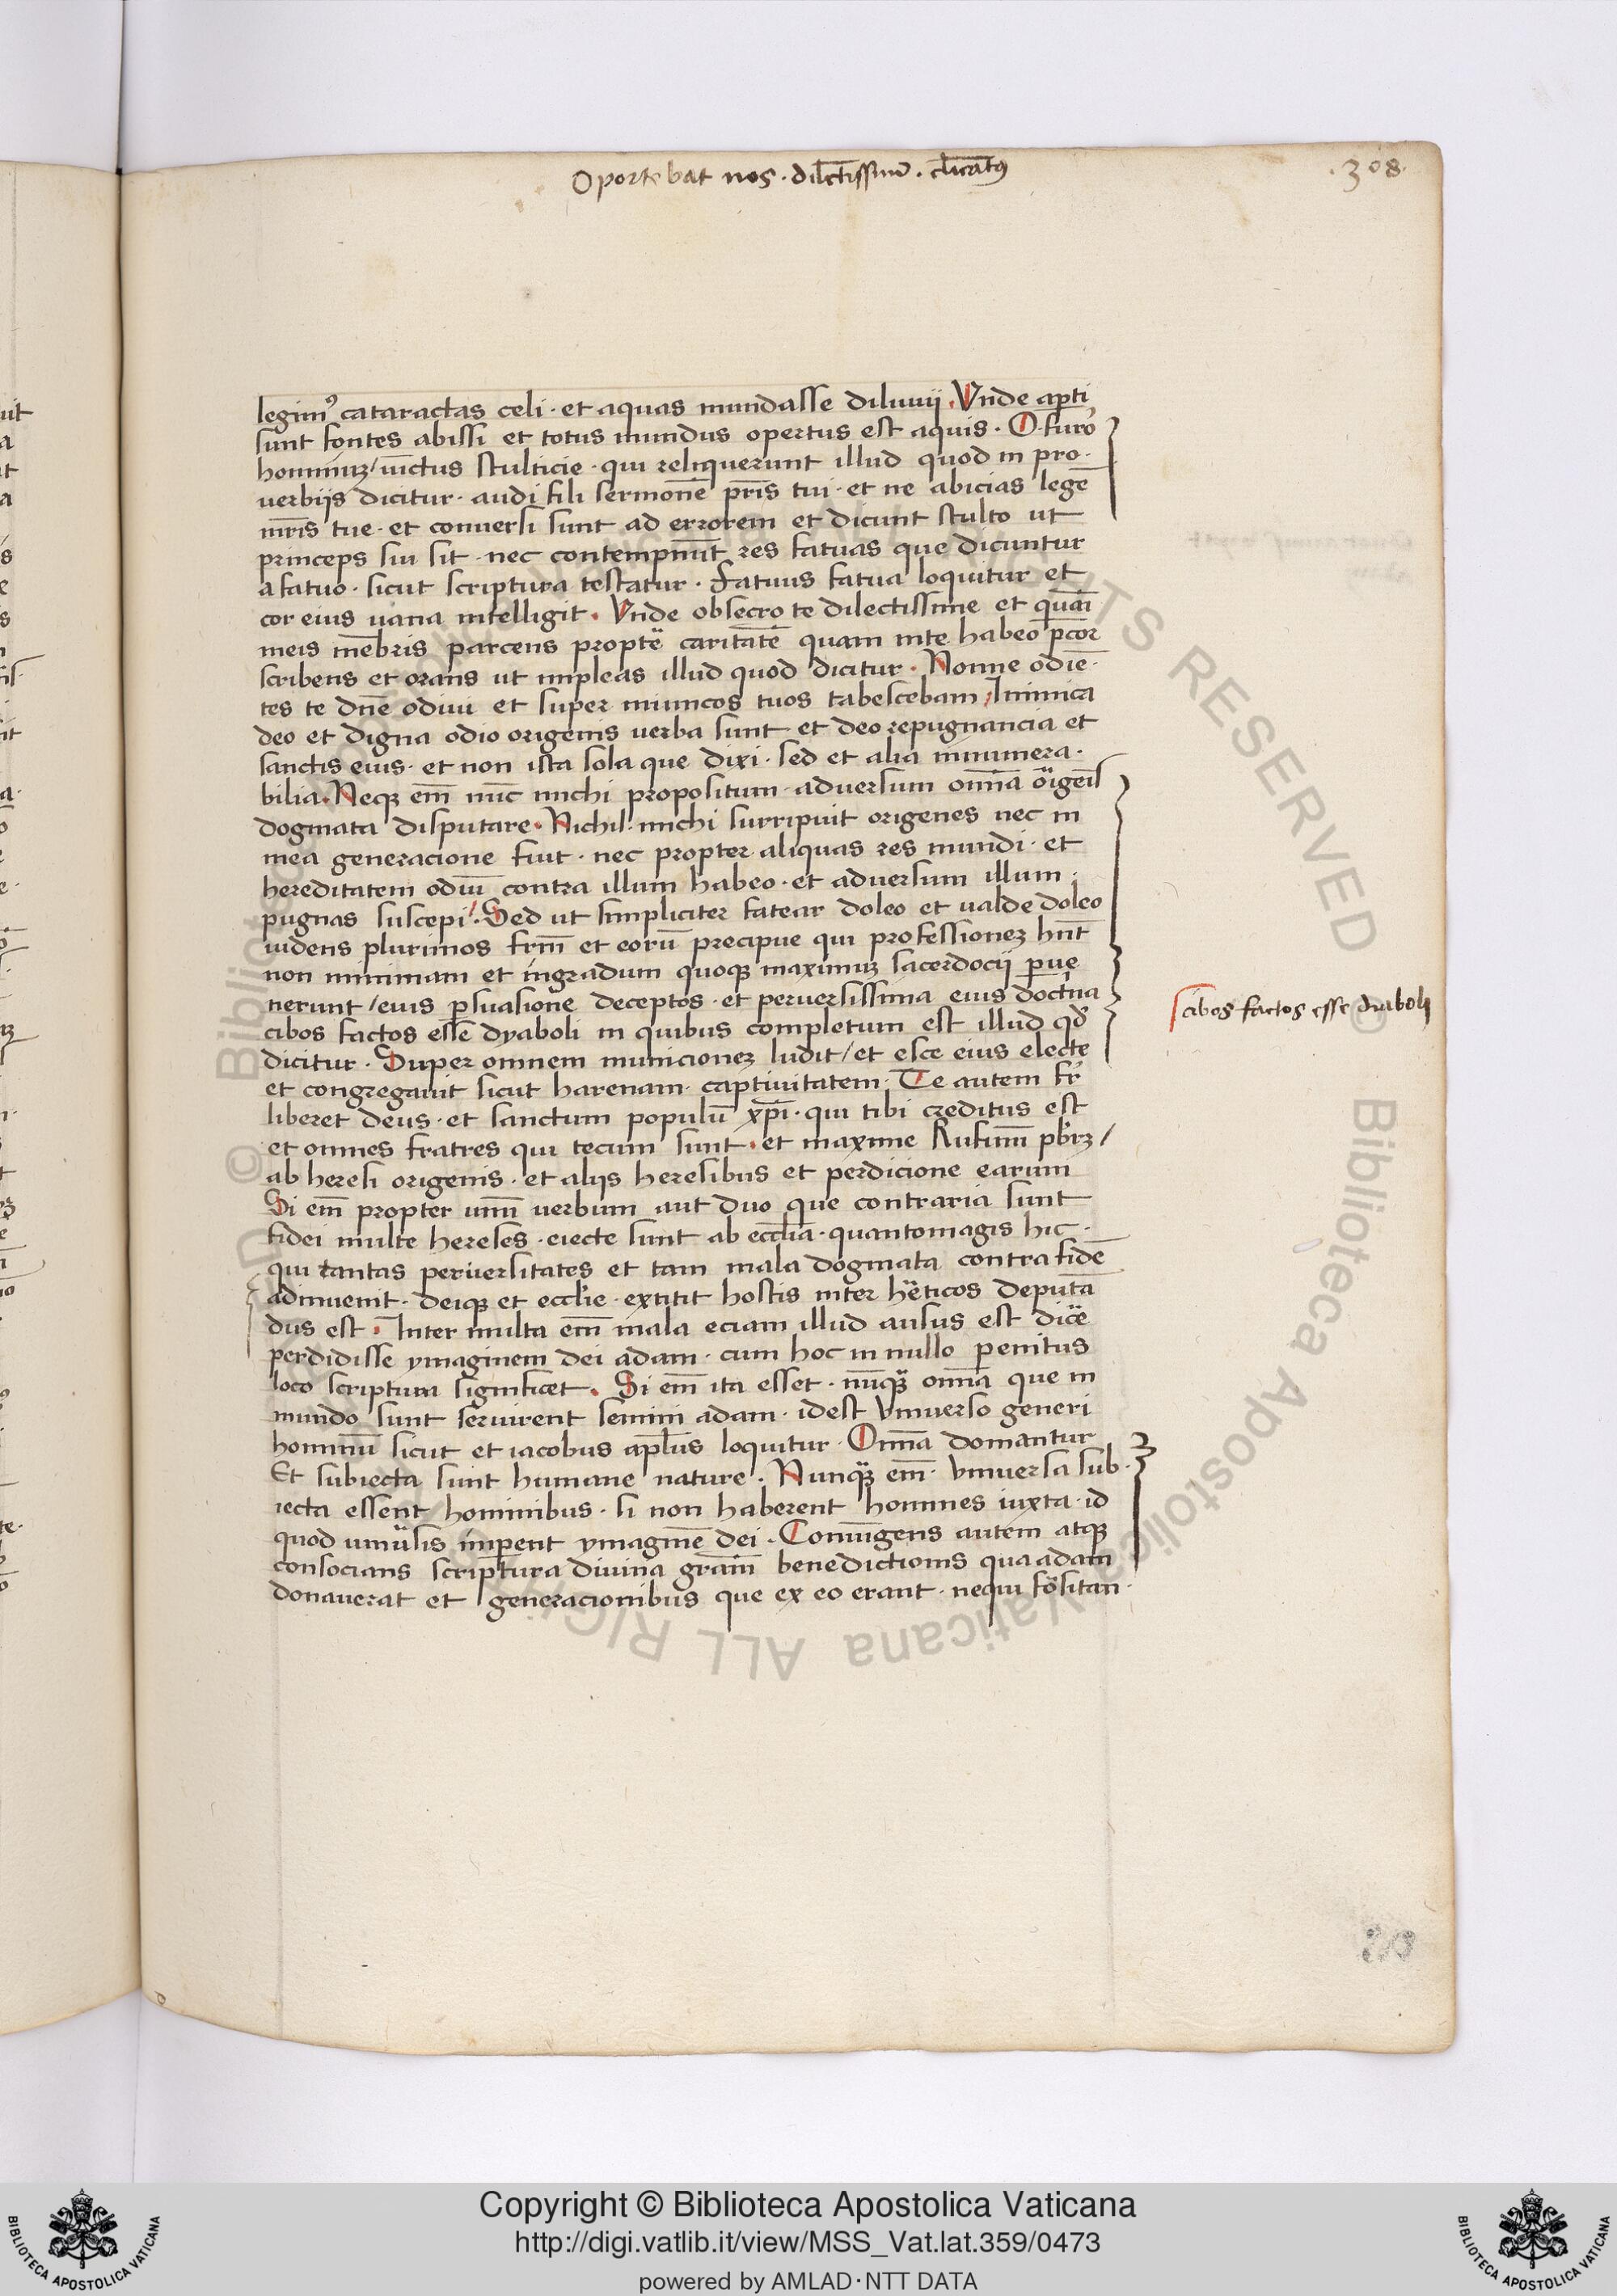 Oportebat nos · dilectissim̄ · cl̄icatꝰ
·308·
legimꝰ cataractas celi · et aquas inundasse diluuij · Vnde ap̄ti
sunt fontes abissi et totus mundus opertus est aquis · O furo᷒
hominuꝫ / uictus stulticie · qui reliquerunt illud quod in pro·
verbiis dicitur · audi fili sermonē pr̄is tui · et ne abicias legē
mr̄is tue · et conuersi sunt ad errorem et dicunt stulto ut
princeps sui sit · nec contempnūt res fatuas que dicuntur
a fatuo · sicut scriptura testatur · Fatuus fatua loquitur et
cor eius uana intelligit · Vnde obsecro te dilectissime et quasi
meis mēbris parcens propt̄ caritatē quam in te habeo p̄cor
scribens et orans ut impleas illud quod dicitur · Nonne odiē·
tes te dnē odiui et super inimicos tuos tabescebam / Inimica
deo et digna odio origenis uerba sunt et deo repugnancia et
sanctis eius · et non ista sola que dixi · sed et alia innumera·
bilia · Neqꝫ em̄ nūc michi propositum · aduersum om̄ia origeīs
dogmata disputare · Nichil michi surripuit origenes nec in
mea generacione fuit · nec propter aliquas res mundi · et
hereditatem odiū contra illum habeo · et aduersum illum ·
pugnas suscepi / · Sed ut simpliciter fatear doleo et ualde doleo
uidens plurimos fr̄m et eorū precipue qui professioneꝫ hn̄t
non minimam et in gradum quoqꝫ maximuꝫ sacerdocij ꝑue
nerunt / eius ꝑsuasione deceptos · et peruersissima eius doctīna
cibos factos esse dyaboli in quibus completum est illud qd̄
dicitur · Super omnem municioneꝫ ludit / et esce eius electe
et congregauit sicut harenam · captiuitatem · Te autem fr̄
liberet deus · et sanctum populū xp̄i · qui tibi creditus est
et omnes fratres qui tecum sunt · et maxime Rufinū pb̄rꝫ /
ab heresi origenis · et alijs heresibus et perdicione earum
Si em̄ propter unū uerbum aut duo que contraria sunt
fidei multe hereses · eiecte sunt ab eccl̄ia · quantomagis hic ·
qui tantas peruersitates et tam mala dogmata contra fidē
adinuenit · deiqꝫ et eccl̄ie · extitit hostis inter h̄eticos deputā
dus est · Inter multa em̄ mala eciam illud ausus est dic̄e
perdidisse ymaginem dei adam · cum hoc in nullo penitus
loco scriptura significet · Si em̄ ita esset · nūqꝫ om̄ia que in
mundo sunt seruirent semini adam · idest vniuerso generi
hominū sicut et iacobus apl̄us loquitur · Om̄ia domantur
Et subiecta sunt humane nature · Nunqꝫ em̄ · vniuersa sub·
iecta essent hominibus · si non haberent homines iuxta · id
quod uniūsis imperent ymaginē dei · Coniūgens autem atqꝫ
consocians scriptura diuina grām̄ benedictionis qua adam
donauerat et generacionibus que ex eo erant · nequi fōsitan·
cibos factos esse diaboli
Copyright © Biblioteca Apostolica Vaticana
http://digi.vatlib.it/view/MSS_Vat.lat.359/0473
powered by AMLAD·NTT DATA